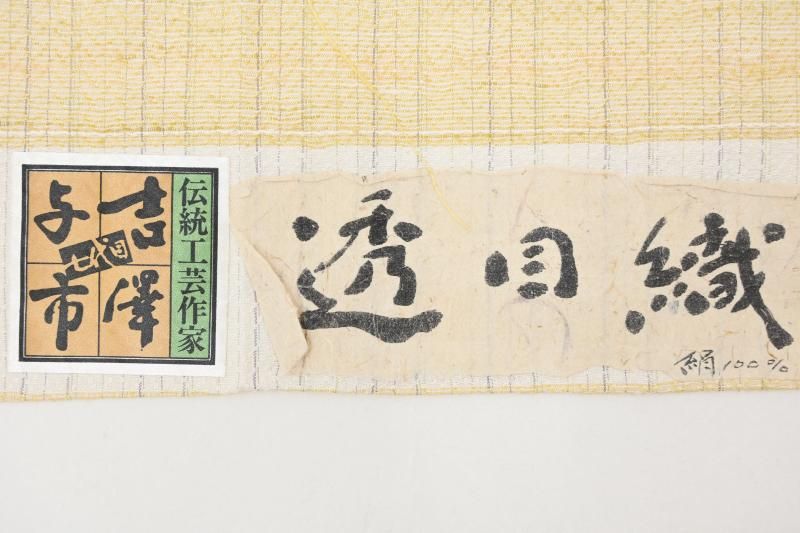 伝統工芸作家
吉澤
与市
七代目
透目織
絹100%